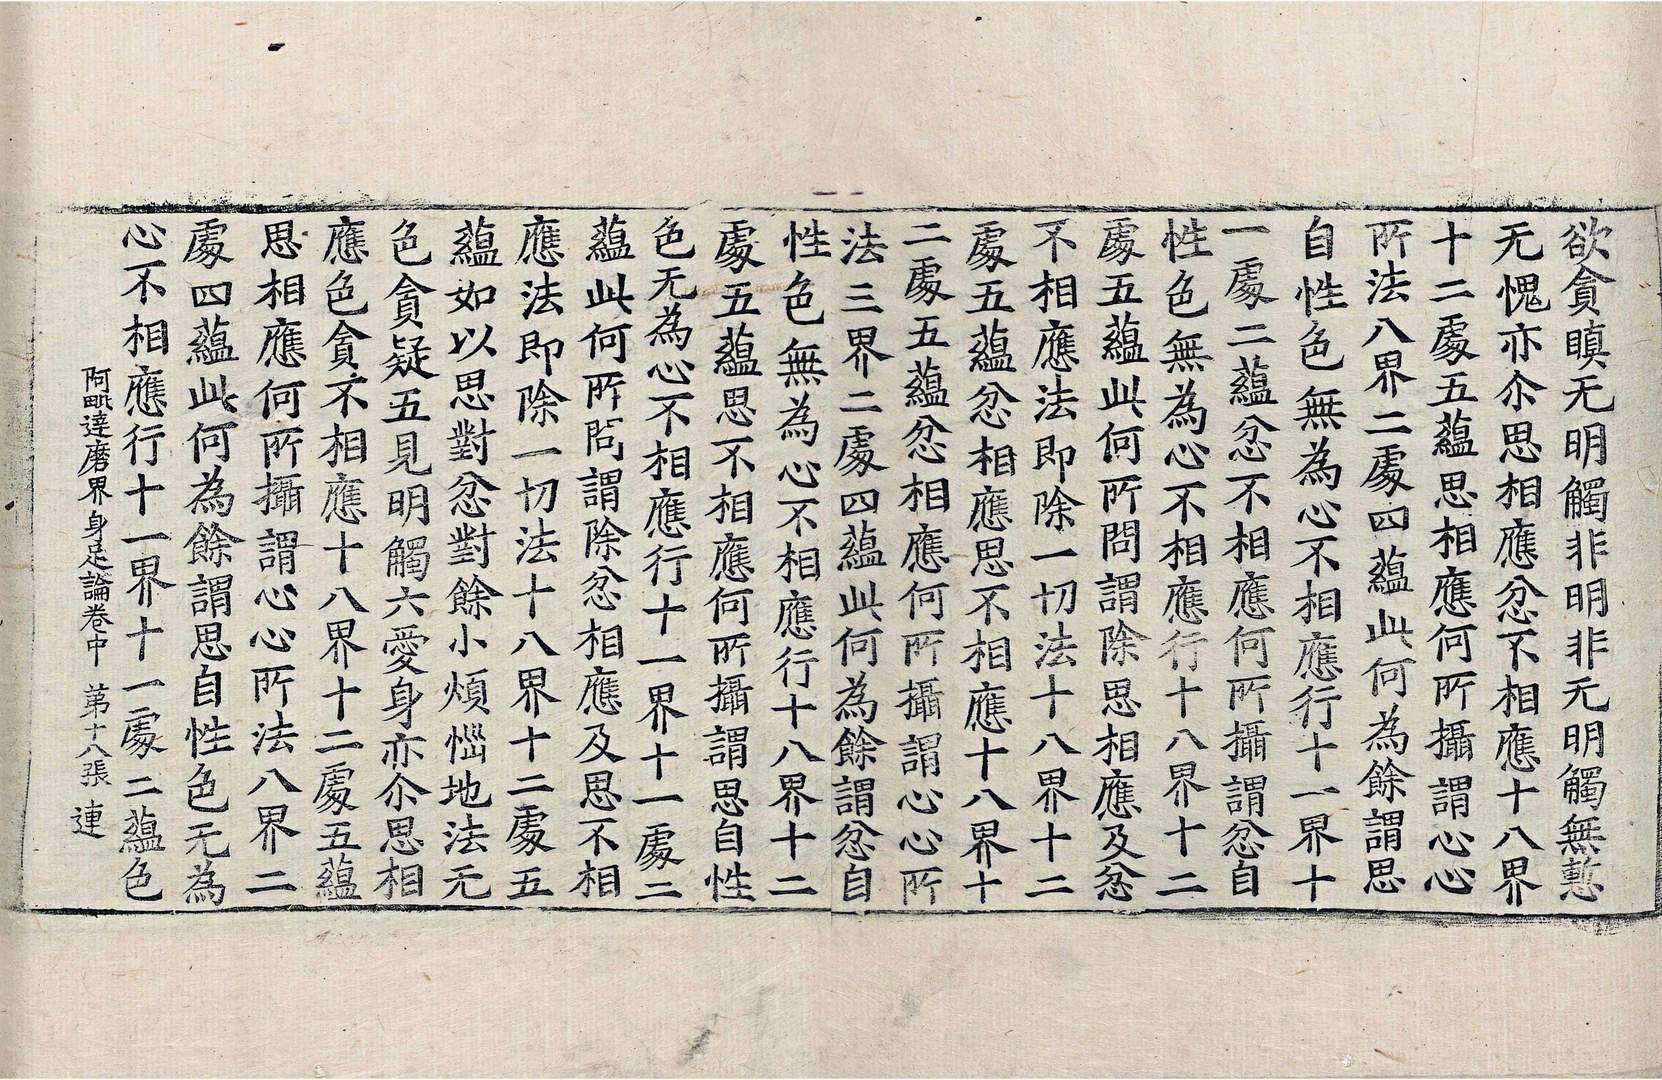 欲貪瞋无明觸非明非无明觸無慙
无愧亦尒思相應忿不相應十八界
十二處五蘊思相應何所攝謂心心
所法八界二處四蘊此何為餘謂思
自性色無為心不相應行十一界十
一處二蘊忿不相應何所攝謂忿自
性色無為心不相應行十八界十二
處五蘊此何所問謂除思相應及忿
不相應法即除一切法十八界十二
處五蘊忿相應思不相應十八界十
二處五蘊忿相應何所攝謂心心所
法三界二處四蘊此何為餘謂忿自
性色無為心不相應行十八界十二
處五蘊思不相應何所攝謂思自性
色无為心不相應行十一界十一處二
蘊此何所問謂除忿相應及思不相
應法即除一切法十八界十二處五
蘊如以思對忿對餘小煩惱地法无
色貪疑五見明觸六愛身亦尒思相
應色貪不相應十八界十二處五蘊
思相應何所攝謂心心所法八界二
處四蘊此何為餘謂思自性色无為
心不相應行十一界十一處二蘊色
阿毗達磨界身足論卷中 第十八張 連